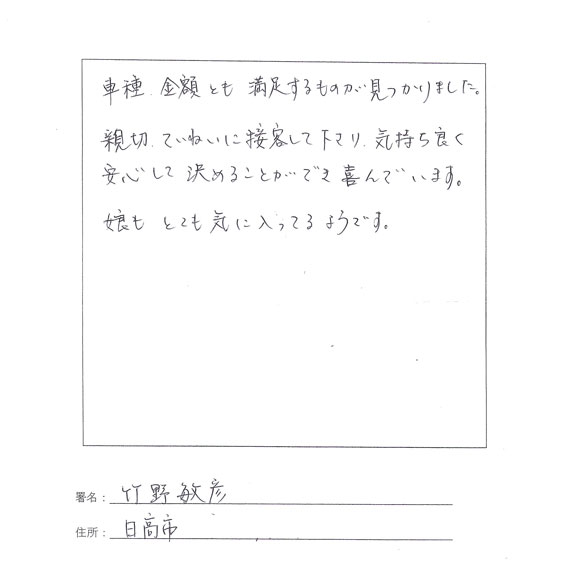 車種、金額とも 満足するものが見つかりました。
親切、ていねいに接客して下さり、気持ち良く
安心して 決めることができ 喜んでいます。
娘も とても気に入ってるようです。
署名: 竹野敏彦
住所: 日高市